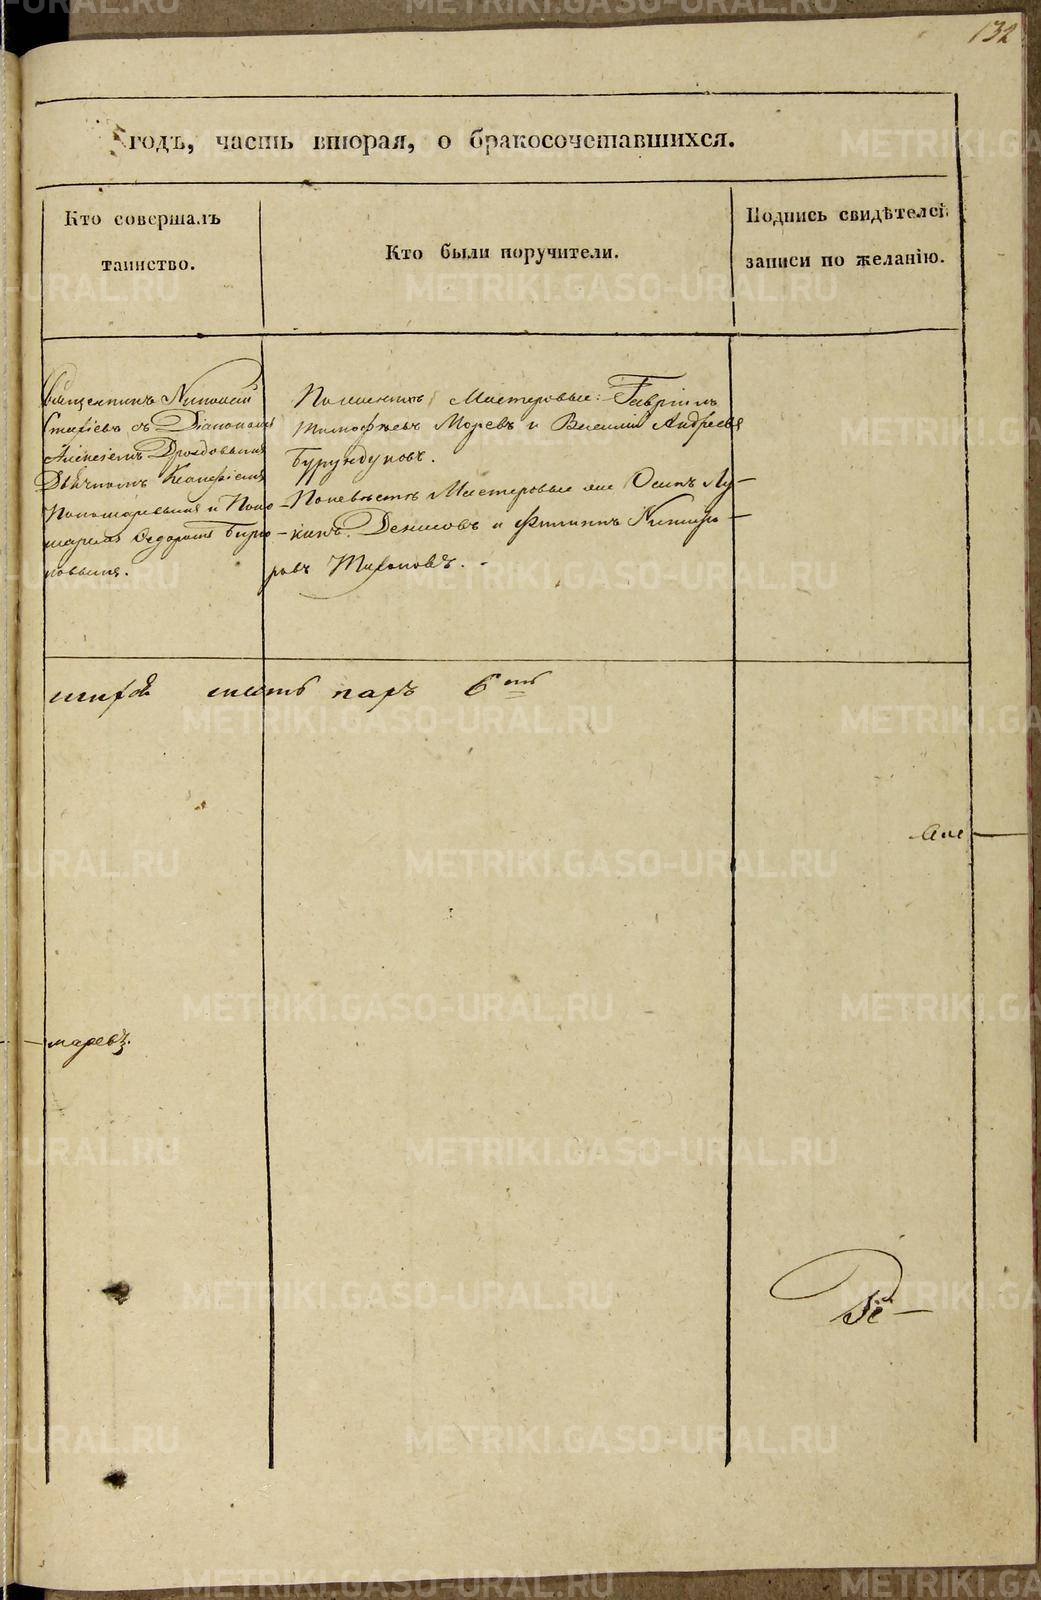 132
годъ, часть вторая, о бракосочетавшихся.
Кто совершалъ
таинство.
Кто были поручители.
Подпись свидѣтелей
записи по желанію.
Священникъ Николай
съ Діакономъ
Алексіемъ Дроздовымъ
Дьячкомъ
Пономаревымъ и Поно-
маремъ Ѳедоромъ Бирю-
ковымъ.
По женихѣ Мастеровые: Гавріилъ
Тимофѣевъ Моревъ и Василій Андреевъ
Бурундуковъ.
По невѣстѣ Мастеровые же Осипъ Лу-
кинъ Денисовъ и Филиппъ Никифо-
ровъ Тихоновъ.
шесть паръ 6ть
маревъ.
METRIKI.GASO-URAL.RU